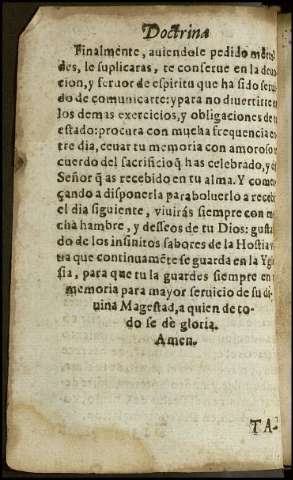 Doctrina
Finalmẽnte, auiendole pedido
des, le suplicaras, te conserue en la
cion, y feruor de espiritu que ha sido
do de comunicarte: y para no diuertirte
los demas exercicios, y obligaciones de
estado: procura con mucha frequencia
tre dia, ceuar tu memoria con amoroso
cuerdo del sacrificio q̃ has celebrado, y
Señor q̃ as recebido en tu alma. Y
çando a disponerla para boluerlo a
el dia siguiente, viuirás siempre con
cha hambre, y desseos de tu Dios:
do de los infinitos sabores de la Hostia
ua que continuamẽte se guarda en la
sia, para que tu la guardes siempre en
memoria para mayor seruicio de su
uina Magestad, a quien de to-
do se dè gloria.
Amen.
TA-